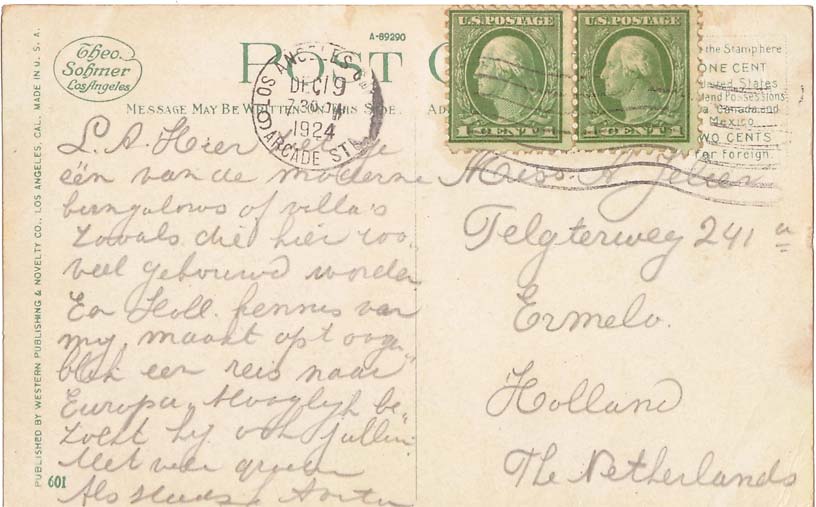 A-89290
Theo. Sohmer
Los Angeles
POST C
MESSAGE MAY BE WRITTEN ON THIS SIDE. AD
LOS ANGELES
DEC 19
7-30 PM
1924
ARCADE STA
U.S. POSTAGE
1 CENT 1
U.S. POSTAGE
1 CENT 1
the Stamp here
ONE CENT
United States
and Possessions
Canada and
Mexico
TWO CENTS
for Foreign.
PUBLISHED BY WESTERN PUBLISHING & NOVELTY CO., LOS ANGELES, CAL. MADE IN U. S. A.
601
L.A. Hier
één van de moderne
bungalows of villa's
zooals die hier zoo
veel gebouwd worden
Een Holl. kennis van
my, maakt op't oogen"
blik een reis naar
Europa, Mogelyk be"
zoekt hy ook jullie.
Met veel groeten
Als steeds
Miss. H.
Telgterweg 241 a
Ermelo.
Holland
The Netherlands